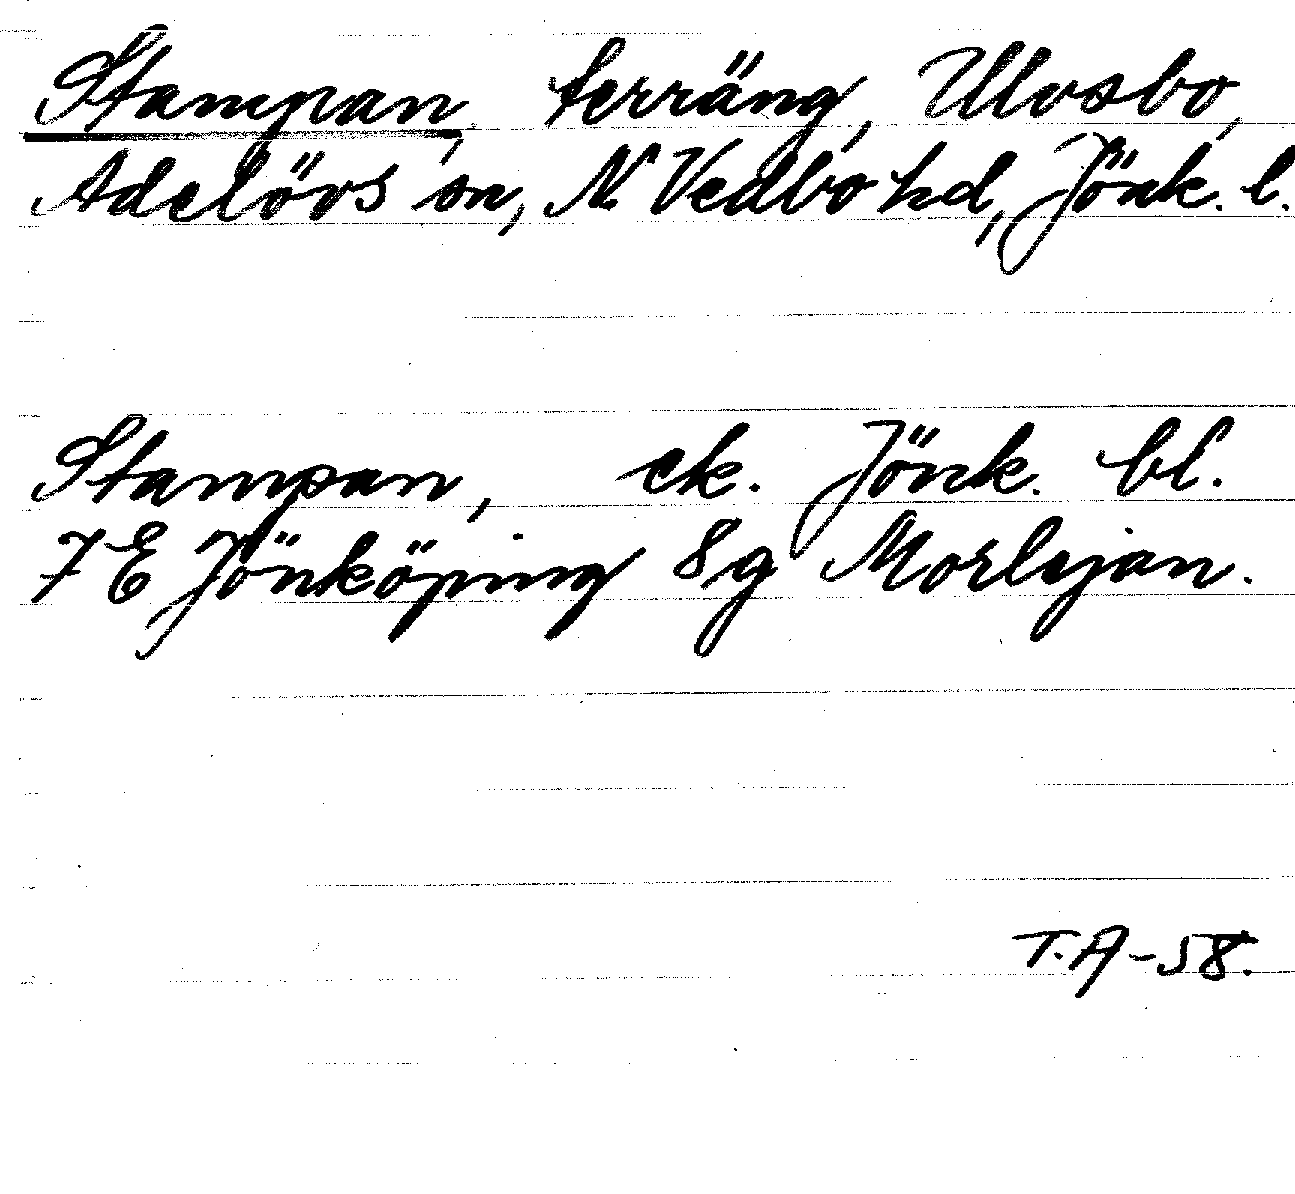 Stampan, terräng, Ulvsbo,
Adelövs sn, N. Vedbo hd, Jönk. l.
Stampan, ek. Jönk. bl.
7 E Jönköping 8g Morlejan.
T.A-58.